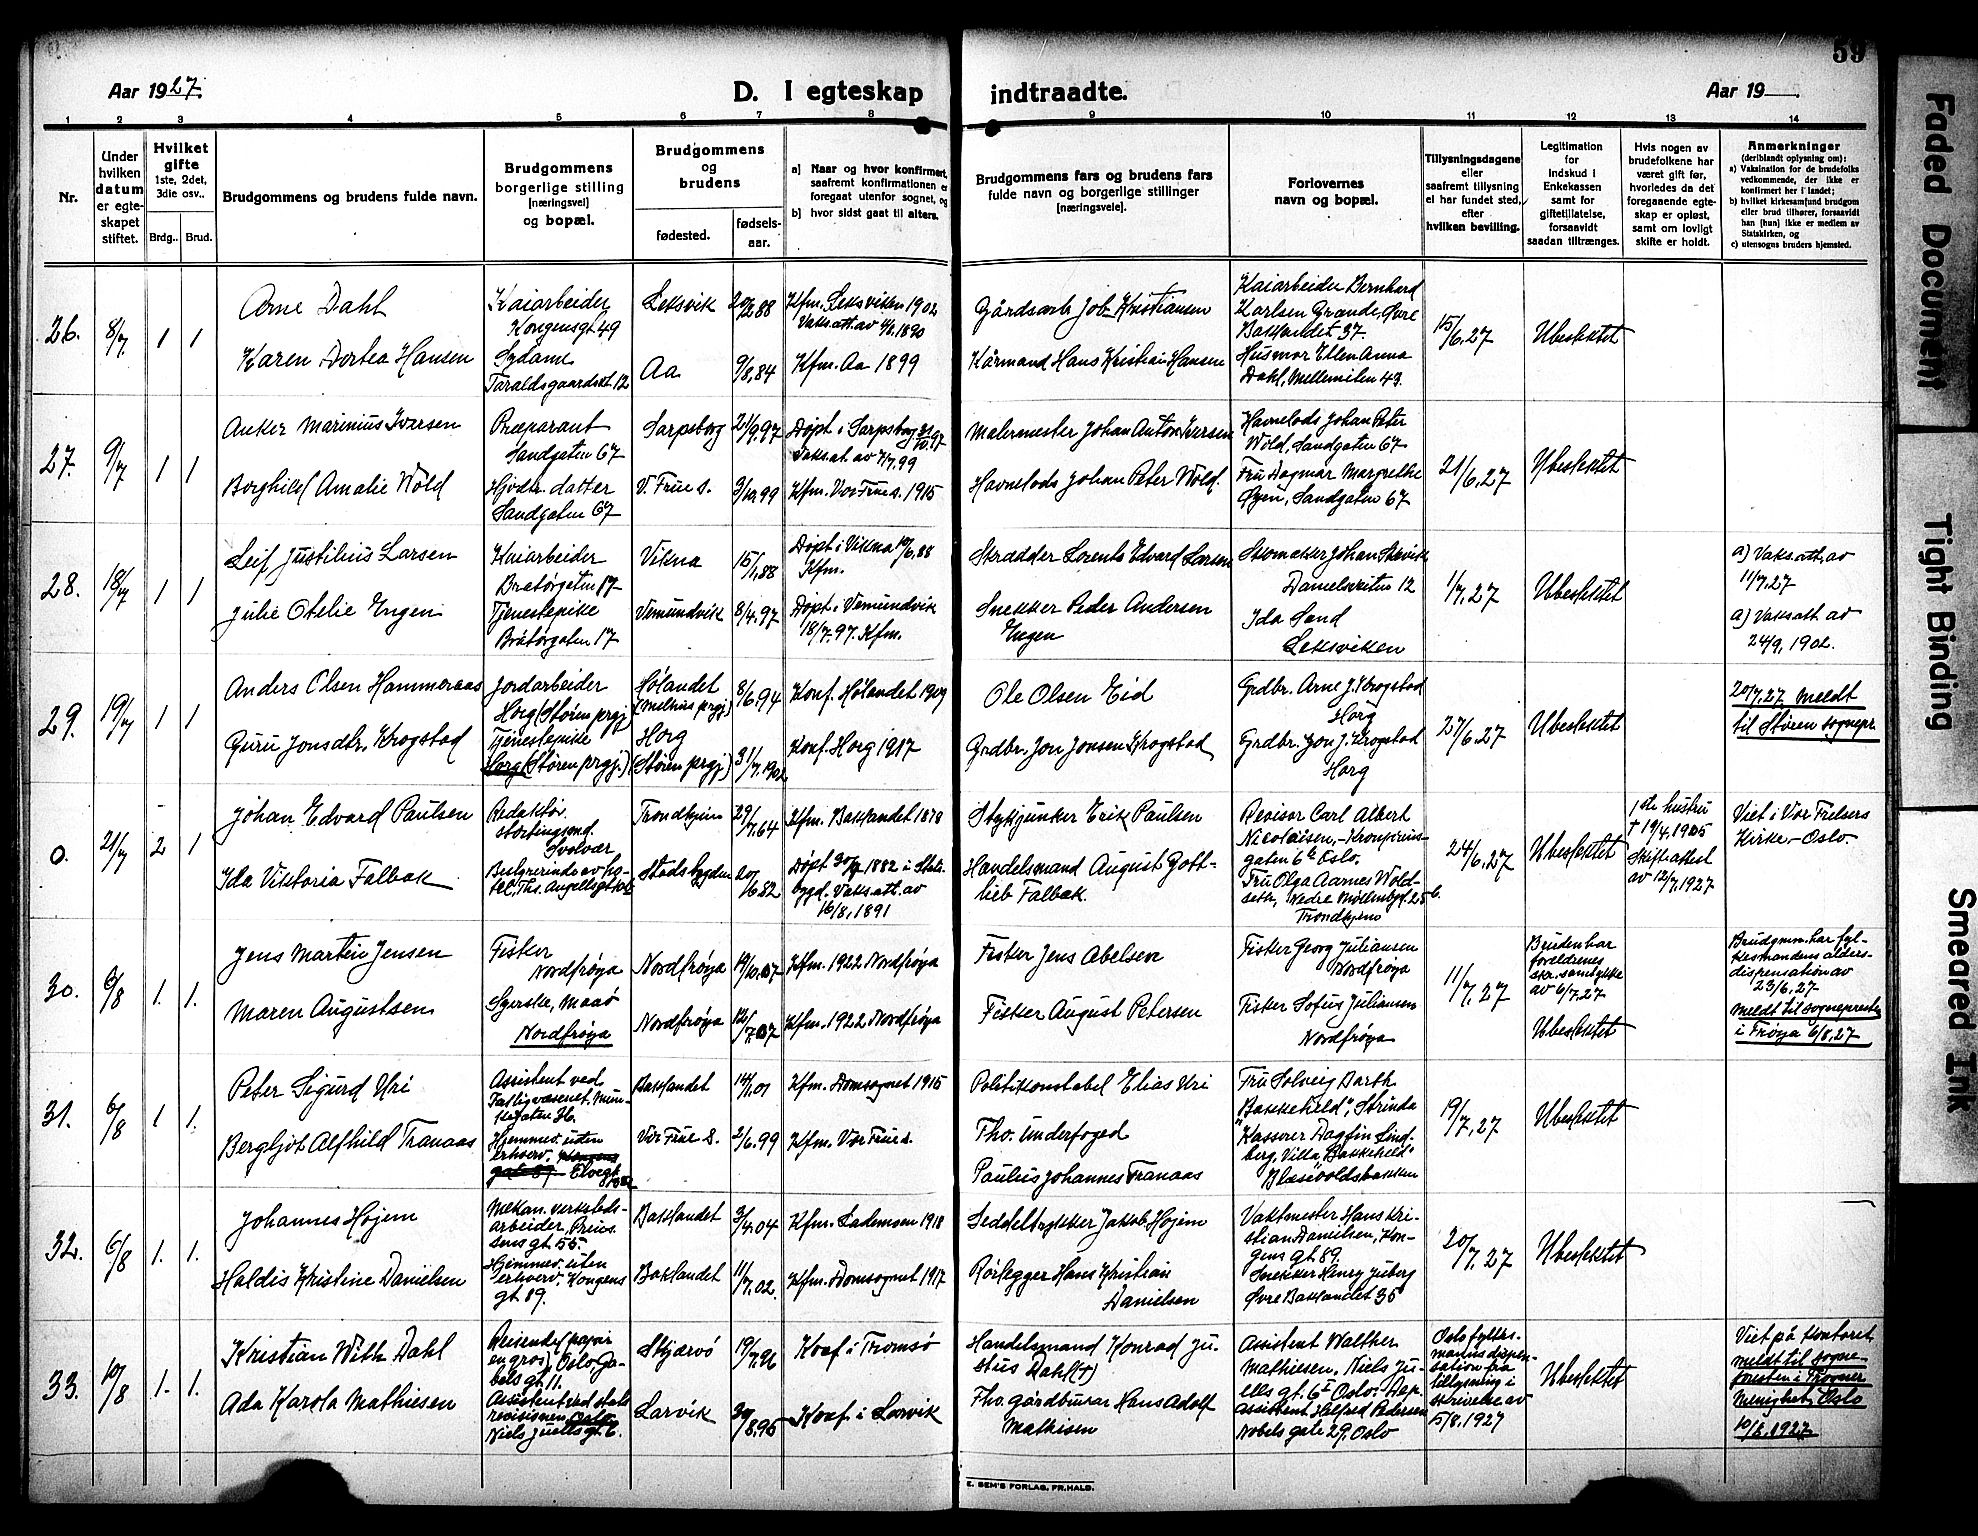 59
Aar 1927.
D. I egteskap
indtraadte.
Aar 19
1 2 3 4 5 6 7 8 9 10 11 12 13 14
Nr.
Under
hvilken
datum
er egte-
skapet
stiftet.
Hvilket
gifte
1ste, 2det,
3die osv..
Brdg.. Brud.
Brudgommens og brudens fulde navn.
Brudgommens
borgerlige stilling
[næringsvei]
og bopæl.
Brudgommens
og
brudens
fødested.
fødsels-
aar.
a) Naar og hvor konfirmert,
saafremt konfirmationen er
foregaat utenfor sognet, og
b) hvor sidst gaat til alters.
Brudgommens fars og brudens fars
fulde navn og borgerlige stillinger
[næringsveie].
Forlovernes
navn og bopæl.
Tillysningsdagene
eller
saafremt tillysning
ei har fundet sted,
efter
hvilken bevilling.
Legitimation
for
indskud i
Enkekassen
samt for
giftetillatelse,
forsaavidt
saadan tiltrænges.
Hvis nogen av
brudefolkene har
været gift før,
hvorledes da det
foregaaende egte-
skap er opløst,
samt om lovligt
skifte er holdt.
Anmerkninger
(deriblandt oplysning om):
a) Vaksination for de brudefolks
vedkommende, der ikke er
konfirmert her i landet;
b) hvilket kirkesamfund brudgom
eller brud tilhører, forsaavidt
han (hun) ikke er medlem av
Statskirken, og
c) utensogns bruders hjemsted.
26. 8/7 1 1
Arne Dahl
Karen Dortea Hansen
Kaiarbeider
Kongensgt. 49
Sydame
Taraldsgaardsvt. 12
Leksvik
Aa
9/8.84
Kfm. Leksviken 1902
Kfm. Aa 1899
Gårdsarb. Job Kristiansen
Kårmand Hans Kristian Hansen
Kaiarbeider Bernhard
Karlsen Grande, Øvre
Bakkandet 37.
Husmor Ellen Anna
Dahl, Mellemilen 43.
15/6.27
Ubeskattet
27. 9/7 1 1
Anker Marinius Iversen
Borghild Amalie Wold
Præparant
Sandgaten 67
Hjvdr. datter
Sandgaten 67
Sarpsborg
V. Frue s.
21/9.97
3/10.99
Døpt i Sarpsborg
Vaks.at. av 7/7.99
Kfm. Vor Frue s. 1915
Malermester Johan Anton Iversen
Havnelods Johan Peter Wold.
Havnelods Johan Peter
Wold, Sandgaten 67
Fru Dagmar Margrethe
Øyen, Sandgaten 67
21/6.27
Ubeskattet
28. 18/7 1 1
Leif Justinius Larsen
Julie Otelie Engen
Kaiarbeider
Bratørgaten 17
Tjenestepike
Bratørgaten 17
Vikna
Vemundvik
15/1.88
8/4.97
Døpt i Vikna 10/6.88
Kfm.
Døpt i Vemundvik
18/7.97. Kfm.
Skrædder Lorents Edvard Larsen
Snekker Peder Andersen
Engen
Skomaker Johan
Danielsveiten 12
Ida Sand
Leksviken
1/7.27
Ubeskattet
a) Vaks.att. av
11/7.27
a) Vaks.att. av
24/9.1902.
29. 19/7 1 1
Anders Olsen Hammeraas
Guru Jonsdtr. Krogstad
Jordarbeider
Horg (Støren prgj.)
Tjenestepike
Horg (Støren prgj.)
Hølandet
(Melhus prgj.)
Horg
(Støren prgj)
8/6.94
31/7.1902
Konf. Hølandet 1909
Konf. Horg 1917
Ole Olsen Eid
Grdbr. Jon Jonsen Krogstad
Grdbr. Arne J. Krogstad
Horg
Grdbr. Jon J. Krogstad
Horg
27/6.27
Ubeskattet
20/7.27 Meldt
til Støren sognepr.
0. 21/7 2 1
Johan Edvard Paulsen
Ida Viktoria Falbak
Redaktør
stortingsmd.
Svolvær
Bestyrerinde av ho-
tel,
Trondhjem
Stadsbygden
29/7.64
20/6.82
Kfm. Bakkandet 1878
Døpt 30/7 1882 i Stads-
bygd. Vaks.att. av
16/8.1891
Stykjunker Erik Paulsen
Handelsmand August Gott-
lieb Falbak.
Revisor Carl Albert
Nicolaisen, Kronprins-
gaten 6b Oslo.
Fru Olga Aarnes Wold-
seth, Nedre Møllenbgt. 25 b.
Trondhjem
24/6.27
Ubeskattet
1ste hustru
† 19/4.1905
Skifteattest
av 12/7.1927
Viet i Vor Frelsers
Kirke - Oslo.
30. 6/8 1. 1.
Jens Martin Jensen
Maren Augustsen
Fisker
Nordfrøya
Syerske, Mausø
Nordfrøya
Nordfrøya
Nordfrøya
19/10.07
12/7.07
Kfm. 1922 Nordfrøya
Kfm. 1922 Nordfrøya
Fisker Jens Abelsen
Fisker August Petersen
Fisker Georg Juliansen
Nordfrøya
Fisker Sofus Juliansen
Nordfrøya
11/7.27
Bruden har
foreldrenes
skr. samtykke
av 6/7.27
Ubeskattet
Brudgmm. har fyl-
kesmandens alders-
dispensation av
23/6.27
Meldt til sogneprest
i Frøya 6/8.27
31. 6/8 1 1.
Peter Sigurd Uri
Bergljot Alfhild Tranaas
Assistent ved
Fattigvæsenet, Mun-
kegaten 36.
Hjemmev. uten
erhverv. Kongens
gate 89
Bakkandet
Vor Frue S.
14/1.01
2/6.99
Kfm. Domsognet 1915
Kfm. Vor Frue s.
Politikonstabel Elias Uri
Fho. Underfoged
Paulus Johannes Tranaas
Fru Solveig Barth
"Bakkehild", Strinda
Kasserer Dagfin Lind-
berg, Villa "Bakkehild"
Blæsevoldsbakken
19/7.27
Ubeskattet
32. 6/8 1. 1.
Johannes Højem
Haldis Kristine Danielsen
Mekan. verksteds-
arbeider, Prins-
sens gt. 55.
Hjemmev. uten
erhverv. Kongens
gt. 89.
Baklandet
Baklandet
3/4.04
11/7.02.
Kfm. Lademoen 1918
Kfm. Domsognet 1917
Seddeltrykker Jakob Højem
Rørlegger Hans Kristian
Danielsen
Vaktmester Hans Kri-
stian Danielsen, Kon-
gens gt. 89.
Snekker Henry Juberg
Øvre Baklandet 35
20/7.27
Ubeskattet
33. 10/8 1. 1.
Kristian With Dahl
Ada Karola Mathiesen
Reisende (papir
en gros), Oslo, Ga-
bels gt. 11.
Assistent ved stats
revisionen, Oslo
Niels Juells gt. 6.
Skjærvø
Larvik
19/7.96
Konf. i Tromsø
Konf. i Larvik
Handelsmand Konrad Ju-
stus Dahl (†)
Fho. gårdbruker Hans Adolf
Mathisen
Assistent Walther
Mathiesen, Niels Ju-
ells gt. 6 Oslo.
assistent Halfred Pedersen
Nobels gate 29, Oslo
Oslo fylkes-
mannsdispen-
sation fra
tillysning i
skrivelse av
5/8.1927
Ubeskattet
Viet på kontoret
meldt til sogne-
presten i Frogner
Menighet, Oslo
10/8.1927
E. SEM'S FORLAG, FR.HALD.
Faded Document
Tight Binding
Smeared Ink